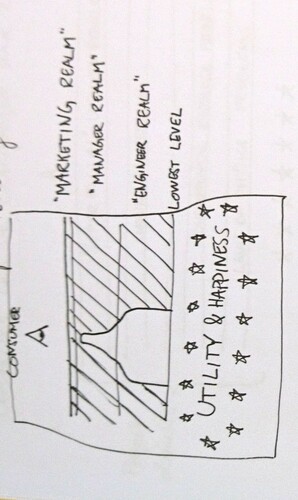 CONSUMER
A
"MARKETING REALM"
"MANAGER REALM"
"ENGINEER REALM"
LOWEST LEVEL
UTILITY & HAPPINESS